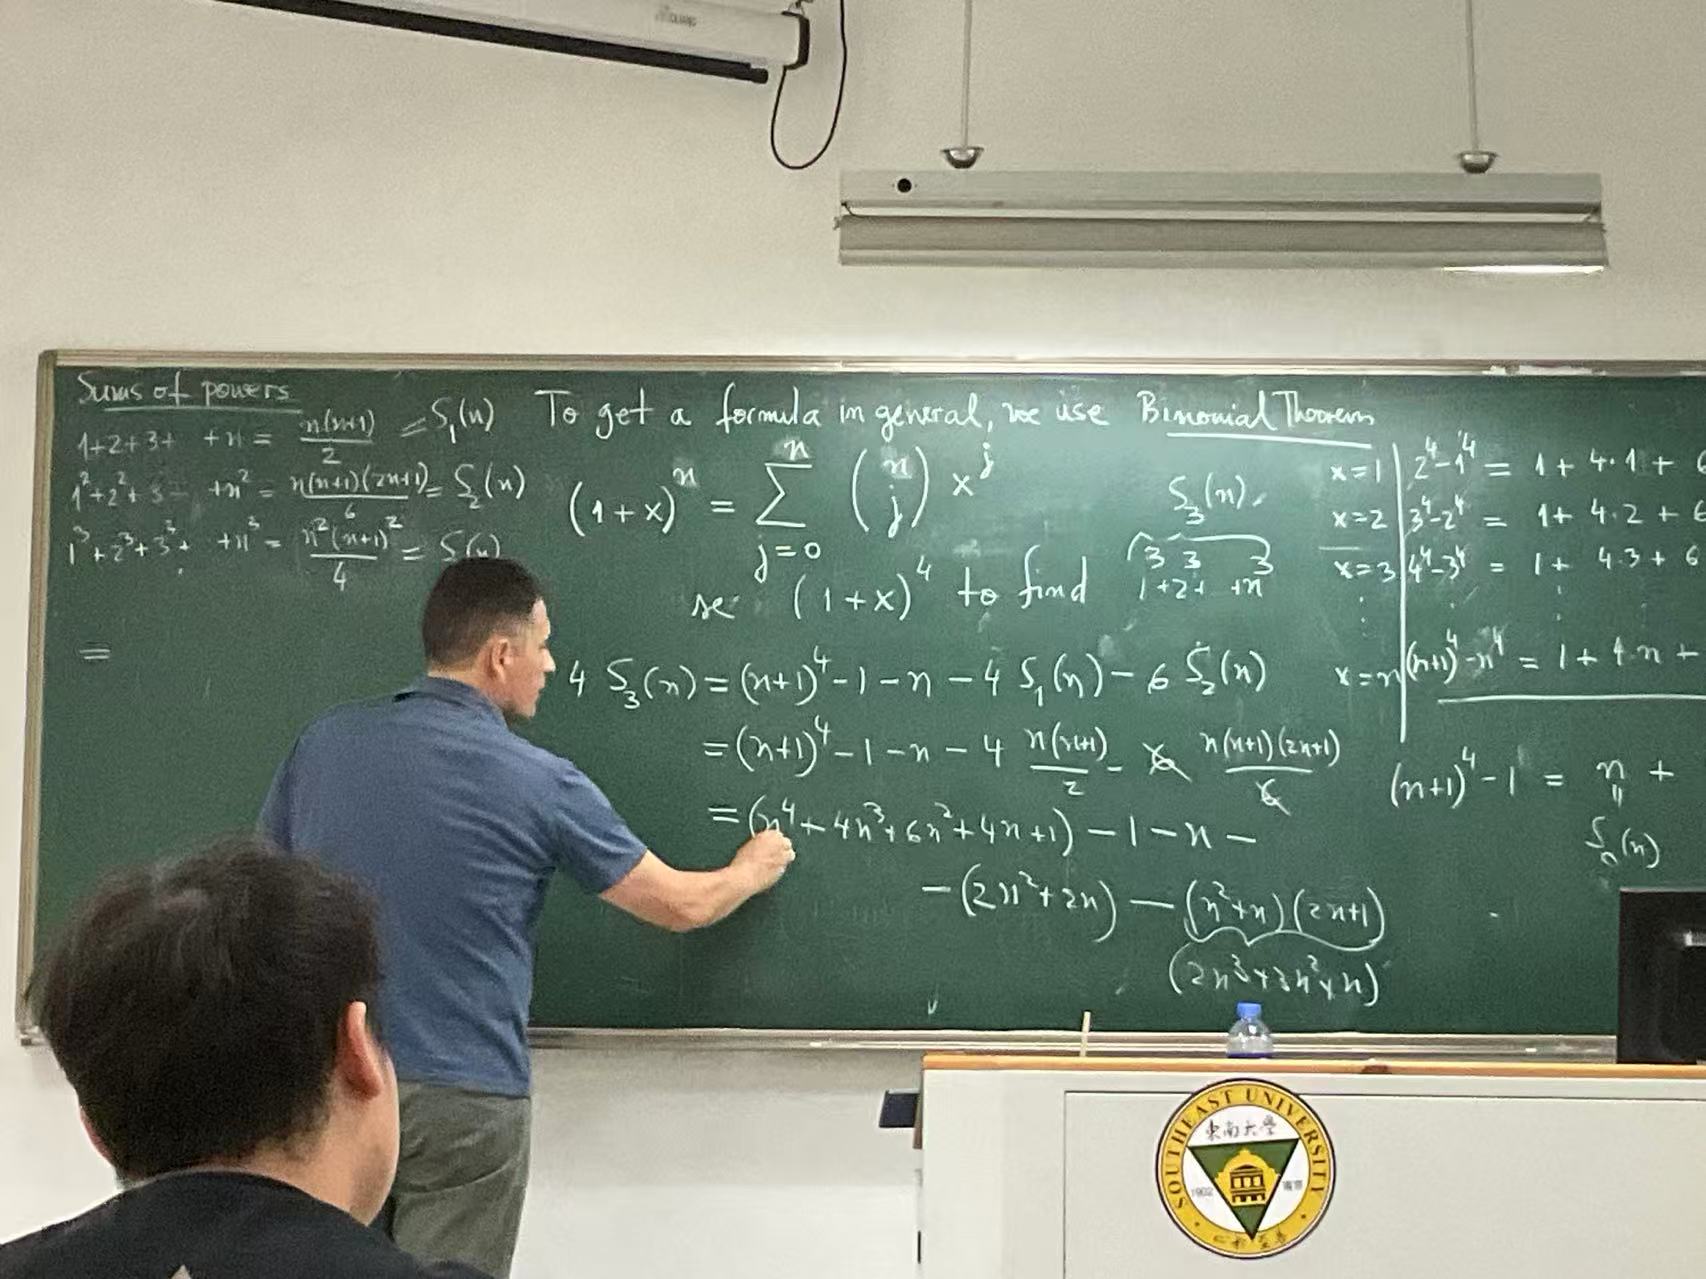 Sums of powers
1+2+3+ +n = n(n+1)/2 = S₁(n)
1²+2²+3 +n² = n(n+1)(2n+1)/6 = S₂(n)
1³+2³+3³+ +n³ = n²(n+1)²/4 = S (n)
=
To get a formula in general, we use Binomial Theorem
(1+x)ⁿ = ∑ⁿ_{j=0} (n j) xʲ
se (1+x)⁴ to find
S₃(n)
1³+2³+ +n³
4 S₃(n) = (n+1)⁴ - 1 - n - 4 S₁(n) - 6 S₂(n)
= (n+1)⁴ - 1 - n - 4 n(n+1)/2 - 6 n(n+1)(2n+1)/6
= (n⁴ + 4n³ + 6n² + 4n + 1) - 1 - n -
- (2n² + 2n) - (n²+n)(2n+1)
(2n³+3n²+n)
x=1 2⁴-1⁴ = 1 + 4·1 + 6
x=2 3⁴-2⁴ = 1 + 4·2 + 6
x=3 4⁴-3⁴ = 1 + 4·3 + 6
x=n (n+1)⁴-n⁴ = 1 + 4·n +
(n+1)⁴ - 1 = n +
S₀(n)
SOUTHEAST UNIVERSITY
東南大學
1902
南京